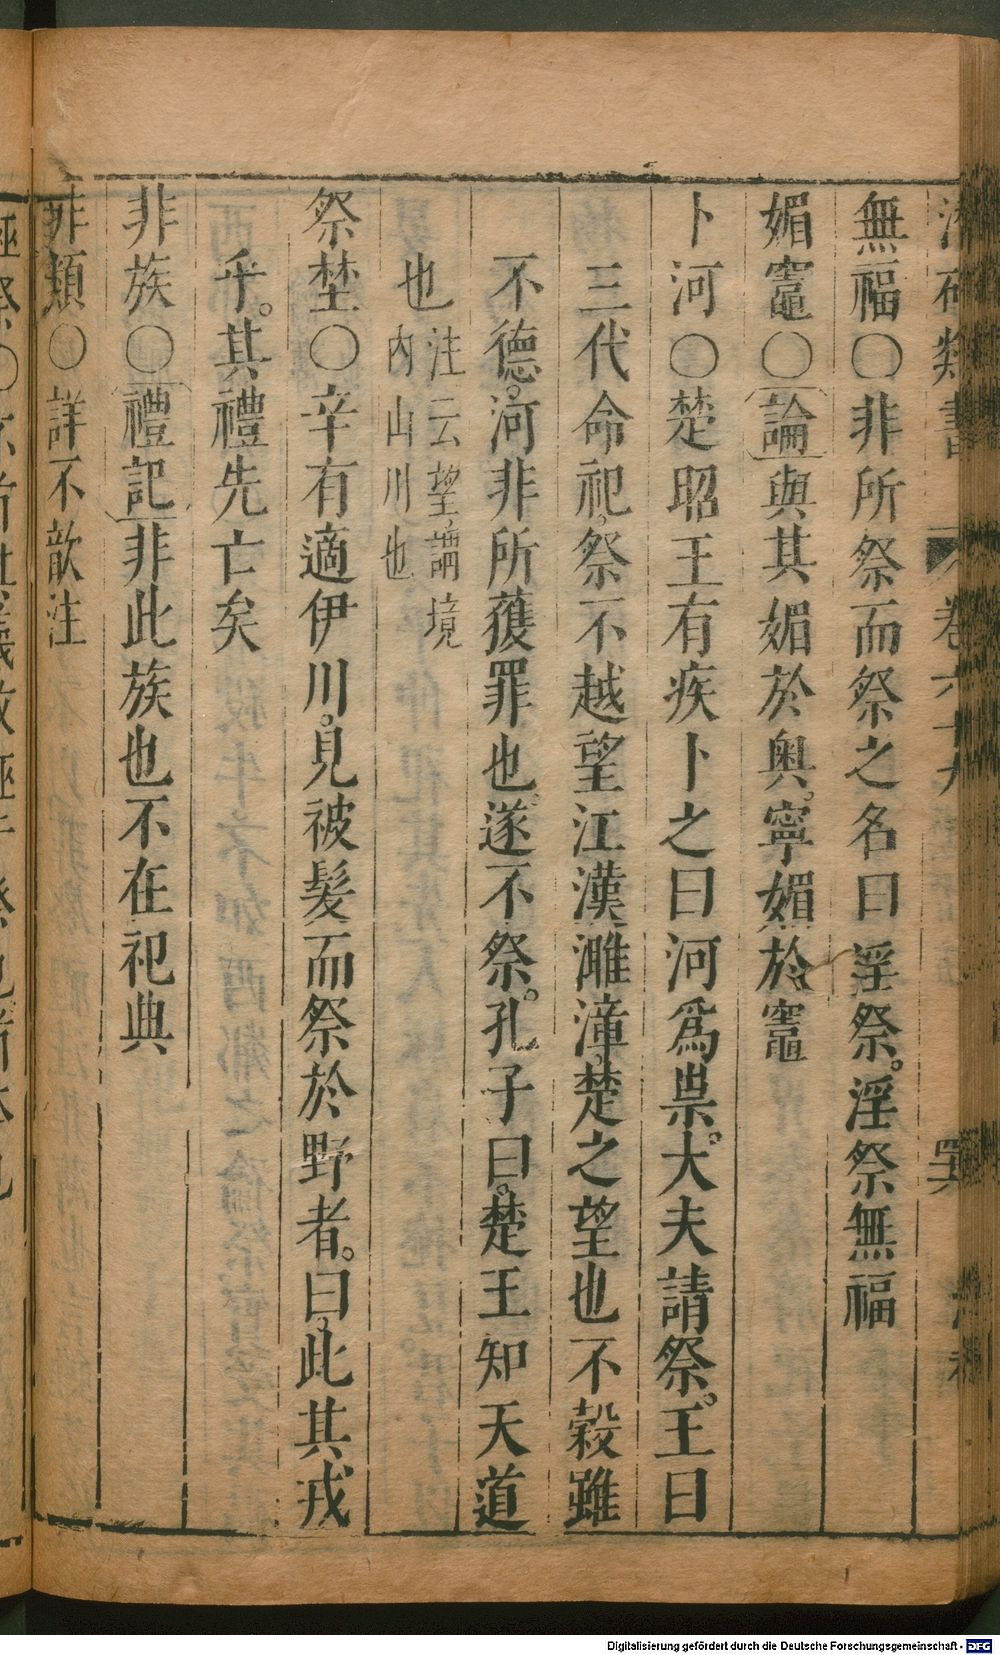 類書 卷六十九
無福〇非所祭而祭之名曰淫祭。淫祭無福
媚竈〇論與其媚於奧。寧媚於竈
卜河〇楚昭王有疾卜之曰河爲祟。大夫請祭。王曰
三代命祀。祭不越望江漢濉漳。楚之望也不穀雖
不德。河非所獲罪也。遂不祭。孔子曰。楚王知天道
也注云望謂境內山川也
祭埜〇辛有適伊川。見被髮而祭於野者。曰。此其戎
乎。其禮先亡矣
非族〇禮記非此族也不在祀典
非類〇詳不歆注
Digitalisierung gefördert durch die Deutsche Forschungsgemeinschaft - DFG